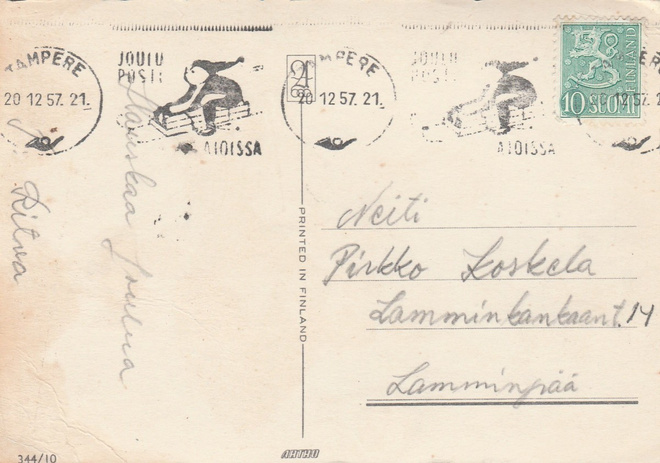 TAMPERE
20 12 57. 21.
JOULU
POSTI
AJOISSA
TAMPERE
20 12 57. 21.
JOULU
POSTI
AJOISSA
FINLAND
10 SUOMI
12 57. 21.
Hauskaa Joulua
Ritva
PRINTED IN FINLAND
Neiti
Pirkko Koskela
Lamminkankaant. 14
Lamminpää
344/10